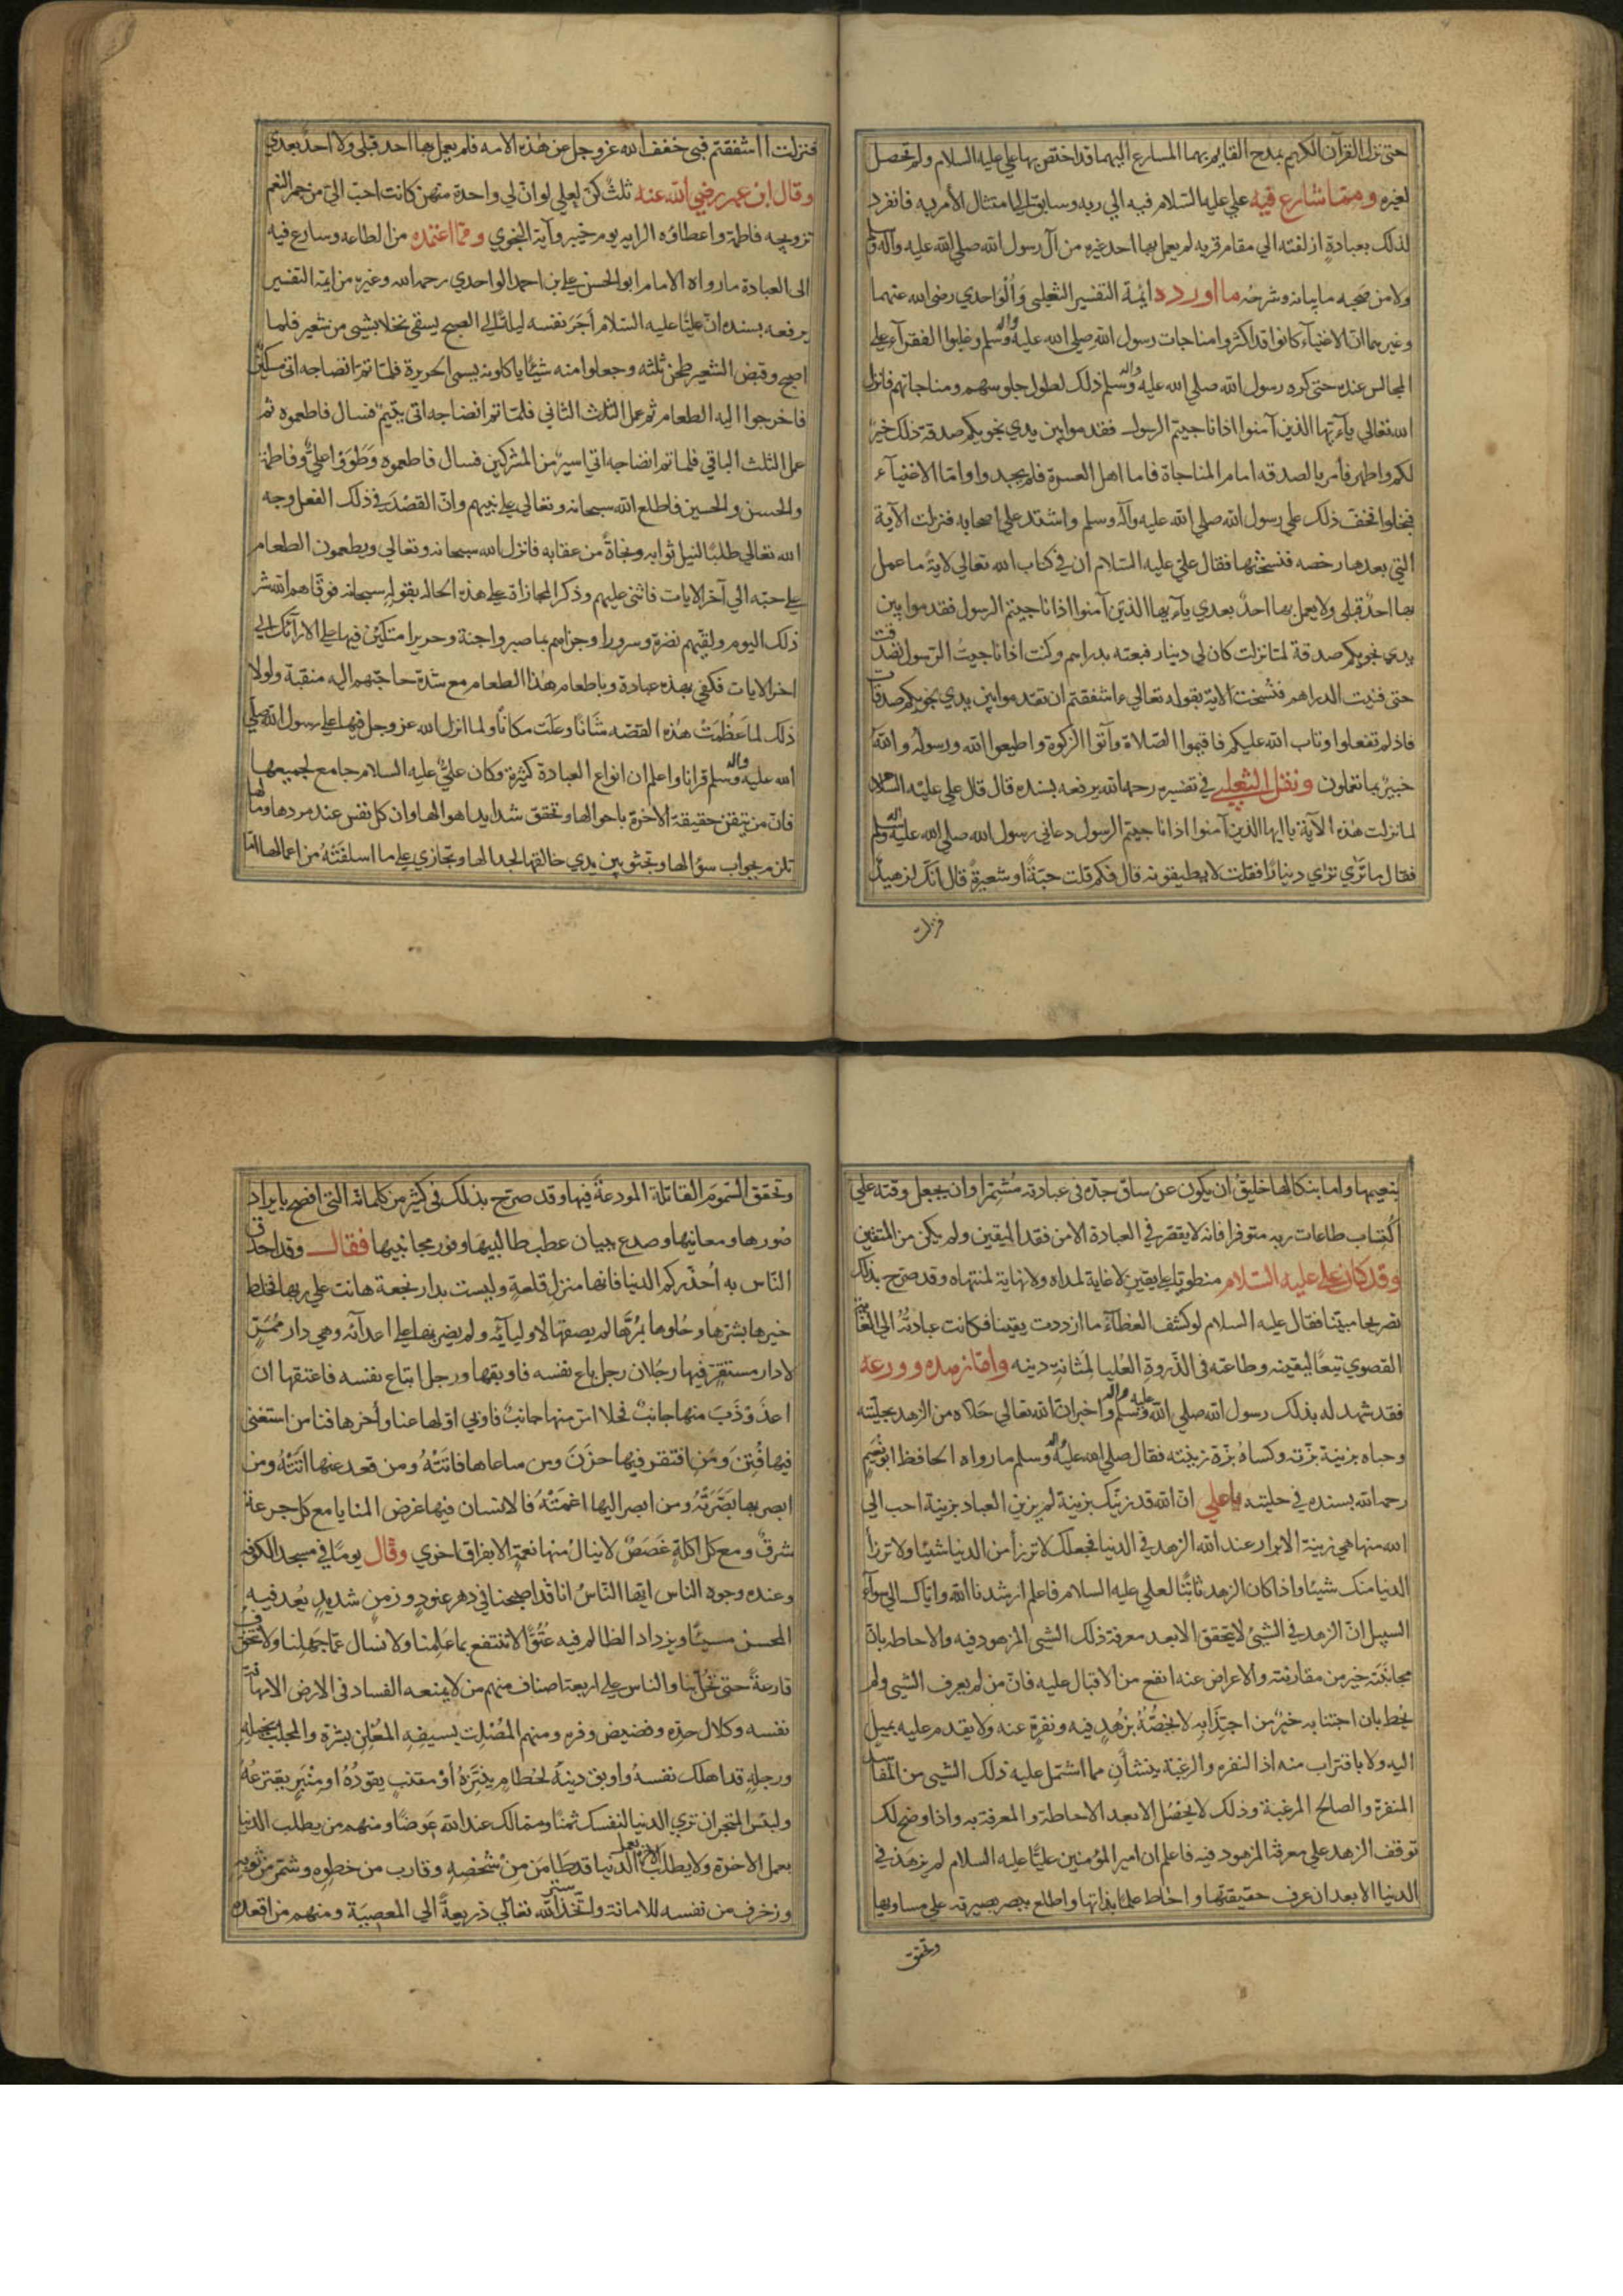 حتى نزل القرآن الكريم بمدح القايم بهما المسارع اليهما قد اختص بها علي عليه السلام ولم تحصل
لغيره ومما شارع فيه علي عليه السلام فيه الي ربه وسابق الى امتثال الأمر به فانفرد
لذلك بعبادةٍ ازلفته الي مقام قربه لم يعمل بها احد غيره من آل رسول الله صلي الله عليه وآله
ولا من صحبه ما بيانه وشرحه ما اورده ايمة التفسير الثعلبى والواحدي رضى الله عنهما
وغيرهما ان الاغنيآء كانوا قد اكثروا مناجات رسول الله صلي الله عليه واله وسلم وغلبوا الفقرآء علي
المجالس عنده حتى كره رسول الله صلي الله عليه واله وسلم ذلك لطول جلوسهم ومناجاتهم فانزل
الله تعالي يآءيها الذين آمنوا اذا ناجيتم الرسول فقدموا بين يدي نجويكم صدقة ذلك خير
لكم واطهر فأمر بالصدقه امام المناجاة فاما اهل العسرة فلم يجدوا واما الاغنيآء
فبخلوا فخف ذلك علي رسول الله صلي الله عليه وآله وسلم واشتد علي اصحابه فنزلت الآية
التي بعدها رخصه فنسختها فقال علي عليه السلام ان في كتاب الله تعالي لاية ما عمل
بها احد قبلى ولا يعمل بها احد بعدي يآءيها الذين آمنوا اذا ناجيتم الرسول فقدموا بين
يدي نجويكم صدقة لما نزلت كان لي دينار فبعته بدراهم وكنت اذا ناجيت الرسول تصدقت
حتى فنيت الدراهم فنسخت الاية بقوله تعالي ءاشفقتم ان تقدموا بين يدي نجويكم صدقات
فاذ لم تفعلوا وتاب الله عليكم فاقيموا الصلاة وآتوا الزكوة واطيعوا الله ورسوله والله
خبير بما تعملون ونقل الثعلبي في تفسيره رحمه الله يرفعه بسنده قال قال علي عليه السلام
لما نزلت هذه الآية يا ايها الذين آمنوا اذا ناجيتم الرسول دعاني رسول الله صلي الله عليه واله وسلم
فقال ما ترى ترى دينارًا فقلت لا يطيقونه قال فكم قلت حبة او شعيرة قال انك لزهيد
فنزلت
فنزلت أاشفقتم فبي خفف الله عز وجل عن هذه الامه فلم يعمل بها احد قبلي ولا احد بعدي
وقال ابن عمر رضي الله عنه ثلث كن لعلي لو ان لي واحدة منهن كانت احب الي من حمر النعم
تزويجه فاطمة واعطاؤه الرايه يوم خيبر وآية النجوي ومما اعتمده من الطاعه وسارع فيه
الى العبادة ما رواه الامام ابو الحسن علي بن احمد الواحدي رحمه الله وغيره من ايمة التفسير
يرفعه بسنده ان عليًا عليه السلام أجر نفسه ليلة الي الصبح يسقى نخلا بشيى من شعير فلما
اصبح وقبض الشعير طحن ثلثه وجعلوا منه شيئا ياكلونه يسمى الحريرة فلما تم انضاجه اتى مسكين
فاخرجوا اليه الطعام ثم عمل الثلث الثاني فلما تم انضاجه اتى يتيم فسال فاطعموه ثم
عمل الثلث الباقي فلما تم انضاجه اتى اسير من المشركين فسال فاطعموه وطووا علي وفاطمة
والحسن والحسين فاطلع الله سبحانه وتعالي علي نيتهم وان القصد في ذلك الفعل وجه
الله تعالي طلبًا لنيل ثوابه ونجاةً من عقابه فانزل الله سبحانه وتعالي ويطعمون الطعام
علي حبه الي آخر الايات فاثنى عليهم وذكر المجازاة علي هذه الحاله بقوله سبحانه فوقاهم الله شر
ذلك اليوم ولقيهم نضرة وسرورا وجزاهم بما صبروا جنة وحريرا متكئين فيها علي الارآئك الي
اخر الايات فكفي بهذه عبادة وباطعام هذا الطعام مع شدة حاجتهم اليه منقبة ولولا
ذلك لما عظمت هذه القصه شانًا وعلت مكانًا ولما انزل الله عز وجل فيها علي رسول الله صلي
الله عليه واله وسلم قرانا واعلم ان انواع العبادة كثيرة وكان علي عليه السلام جامع لجميعها
فان من تيقن حقيقة الاخرة باحوالها وتحقق شدايد اهوالها وان كل نفس عند مردها ومالها
تلزم بجواب سؤالها وتجثو بين يدي خالقها لجدالها وتجازي علي ما اسلفته من اعمالها اما
بنعيمها واما بنكالها خليق ان يكون عن ساق جده فى عبادته مشمرا وان يجعل وقته علي
اكتساب طاعات ربه متوفرا فانه لا يقصر في العبادة الا من فقد اليقين ولم يكن من المتقين
وقد كان علي عليه السلام منطويا علي يقين لا غاية لمداه ولا نهاية لمنتهاه وقد صرح بذلك
تصريحا مبينا فقال عليه السلام لو كشف الغطآء ما ازددت يقينا فكانت عبادته الي الغاية
القصوي تبعًا ليقينه وطاعته فى الذروة العليا لمتانة دينه واما زهده وورعه
فقد شهد له بذلك رسول الله صلي الله عليه واله وسلم واخبر ان الله تعالي حلاه من الزهد بحليته
وحباه بزينة بزته وكساه بزة زينته فقال صلي الله عليه واله وسلم ما رواه الحافظ ابو نعيم
رحمه الله بسنده في حليته يا علي ان الله قد زينك بزينة لم يزين العباد بزينة احب الي
الله منها هي زينة الابرار عند الله الزهد في الدنيا فجعلك لا ترزأ من الدنيا شيئا ولا ترزأ
الدنيا منك شيئا واذا كان الزهد ثابتًا لعلي عليه السلام فاعلم ارشدنا الله واياك الي سوآء
السبيل ان الزهد في الشيئ لا يتحقق الا بعد معرفة ذلك الشيى المزهود فيه والاحاطه بان
مجانبته خير من مقارنته والاعراض عنه انفع من الاقبال عليه فان من لم يعرف الشيى ولم
يحط بان اجتنابه خير من اجتذابه لا يخصه بزهد فيه ونفرة عنه ولا يقدم عليه بميل
اليه ولا باقتراب منه اذ النفره والرغبة ينشأن مما اشتمل عليه ذلك الشيى من المفاسد
المنفرة والصالح المرغبة وذلك لا يحصل الا بعد الاحاطة والمعرفة به واذا وضح لك
توقف الزهد علي معرفة المزهود فيه فاعلم ان امير المؤمنين عليًا عليه السلام لم يزهد في
الدنيا الا بعد ان عرف حقيقتها واحاط علما بذاتها واطلع ببصر بصيرته علي مساويها
وتحقق
وتحقق السموم القاتلة المودعة فيها وقد صرح بذلك فى كثير من كلماته التى افصح بايراد
صورها ومعانيها وصدع ببيان عطب طالبيها وفوز مجانبيها فقال وقد احدق
الناس به أحذركم الدنيا فانها منزل قلعة وليست بدار نجعة هانت علي ربها فخلط
خيرها بشرها وحلوها بمرها لم يصفها لاوليآئه ولم يضن بها علي اعدآئه وهي دار ممر
لا دار مستقر والناس فيها رجلان رجل باع نفسه فاوبقها ورجل ابتاع نفسه فاعتقها ان
اعذوذب منها جانب فحلا امر منها جانب فاوبي اولها عنا وأخرها فنا من استغنى
فيها فتن ومن افتقر فيها حزن ومن ساعاها فاتته ومن قعد عنها اتته ومن
ابصر بها بصرته ومن ابصر اليها اعمته فالانسان فيها غرض المنايا مع كل جرعة
شرق ومع كل اكلة غصص لا ينال منها نعمة الا بفراق اخري وقال يوما في مسجد الكوفة
وعنده وجوه الناس ايها الناس انا قد اصبحنا في دهر عنود وزمن شديد يعد فيه
المحسن مسيئا ويزداد الظالم فيه عتوًا لا ننتفع بما علمنا ولا نسال عما جهلنا ولا نتخوف
قارعةً حتى تحل بنا والناس علي اربعة اصناف منهم من لا يمنعه الفساد فى الارض الا مهانة
نفسه وكلال حده ونضيض وفره ومنهم المصلت بسيفه المعلن بشره والمجلب بخيله
ورجله قد اهلك نفسه واوبق دينه لحطام ينتهزه أو مقنب يقوده او منبر يفترعه
ولبئس المتجر ان تري الدنيا لنفسك ثمنًا ومما لك عند الله عوضًا ومنهم من يطلب الدنيا
بعمل الاخرة ولا يطلب الاخرة بعمل الدنيا قد طامن من شخصه وقارب من خطوه وشمر من ثوبه
وزخرف من نفسه للامانة واتخذ ستر الله تعالي ذريعةً الي المعصية ومنهم من اقعده